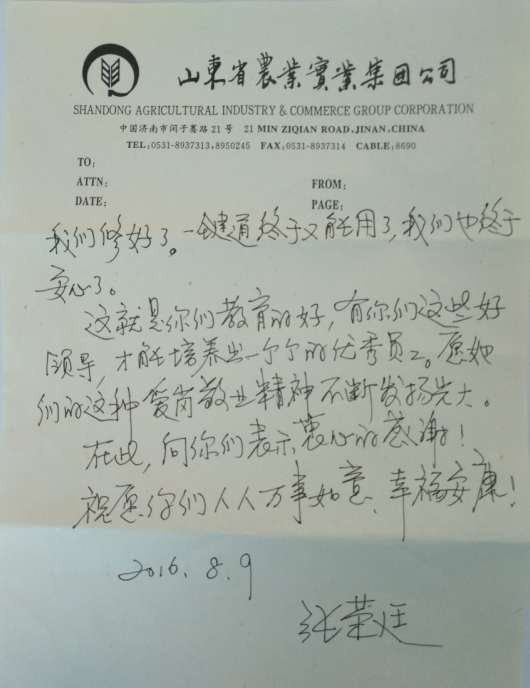 山东省農業實業集团公司
SHANDONG AGRICULTURAL INDUSTRY & COMMERCE GROUP CORPORATION
中国济南市闵子骞路21号 21 MIN ZIQIAN ROAD,JINAN,CHINA
TEL:0531-8937313,8950245 FAX:0531-8937314 CABLE:8690
TO:
ATTN: FROM:
DATE: PAGE:
我们修好了。一键通终于又能用了,我们也终于
安心了。
这就是你们教育的好,有你们这些好
领导,才能培养出一个个的优秀员工。愿她
们的这种爱岗敬业精神不断发扬光大。
在此,向你们表示衷心的感谢!
祝愿你们人人万事如意、幸福安康!
2016.8.9
张荣廷